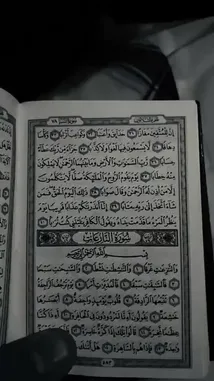 سُورَةُ النَّبَإِ ٧٨
إِنَّ لِلْمُتَّقِينَ مَفَازًا ٣١ حَدَآئِقَ وَأَعْنَٰبًا ٣٢ وَكَوَاعِبَ أَتْرَابًا ٣٣ وَكَأْسًا
دِهَاقًا ٣٤ لَّا يَسْمَعُونَ فِيهَا لَغْوًا وَلَا كِذَّٰبًا ٣٥ جَزَآءً مِّن رَّبِّكَ عَطَآءً
حِسَابًا ٣٦ رَّبِّ السَّمَٰوَٰتِ وَالْأَرْضِ وَمَا بَيْنَهُمَا الرَّحْمَٰنِ لَا يَمْلِكُونَ
مِنْهُ خِطَابًا ٣٧ يَوْمَ يَقُومُ الرُّوحُ وَالْمَلَٰٓئِكَةُ صَفًّا لَّا يَتَكَلَّمُونَ
إِلَّا مَنْ أَذِنَ لَهُ الرَّحْمَٰنُ وَقَالَ صَوَابًا ٣٨ ذَٰلِكَ الْيَوْمُ الْحَقُّ فَمَن
شَآءَ اتَّخَذَ إِلَىٰ رَبِّهِ مَـَٔابًا ٣٩ إِنَّآ أَنذَرْنَٰكُمْ عَذَابًا قَرِيبًا يَوْمَ
يَنظُرُ الْمَرْءُ مَا قَدَّمَتْ يَدَاهُ وَيَقُولُ الْكَافِرُ يَٰلَيْتَنِي كُنتُ تُرَٰبًا ٤٠
سُورَةُ النَّازِعَاتِ
بِسْمِ اللَّهِ الرَّحْمَٰنِ الرَّحِيمِ
وَالنَّٰزِعَٰتِ غَرْقًا ١ وَالنَّٰشِطَٰتِ نَشْطًا ٢ وَالسَّٰبِحَٰتِ سَبْحًا
٣ فَالسَّٰبِقَٰتِ سَبْقًا ٤ فَالْمُدَبِّرَٰتِ أَمْرًا ٥ يَوْمَ تَرْجُفُ الرَّاجِفَةُ
٦ تَتْبَعُهَا الرَّادِفَةُ ٧ قُلُوبٌ يَوْمَئِذٍ وَاجِفَةٌ ٨ أَبْصَٰرُهَا
خَٰشِعَةٌ ٩ يَقُولُونَ أَءِنَّا لَمَرْدُودُونَ فِي الْحَافِرَةِ ١٠ أَءِذَا كُنَّا
عِظَٰمًا نَّخِرَةً ١١ قَالُوا تِلْكَ إِذًا كَرَّةٌ
فَإِذَا هُم بِالسَّاهِرَةِ ١٤ هَلْ أَتَىٰكَ
٥٨٣